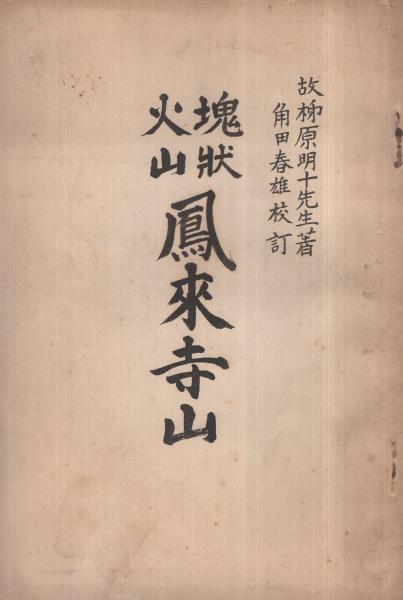 故栁原明十先生著
角田春雄校訂
塊狀
火山
鳳來寺山